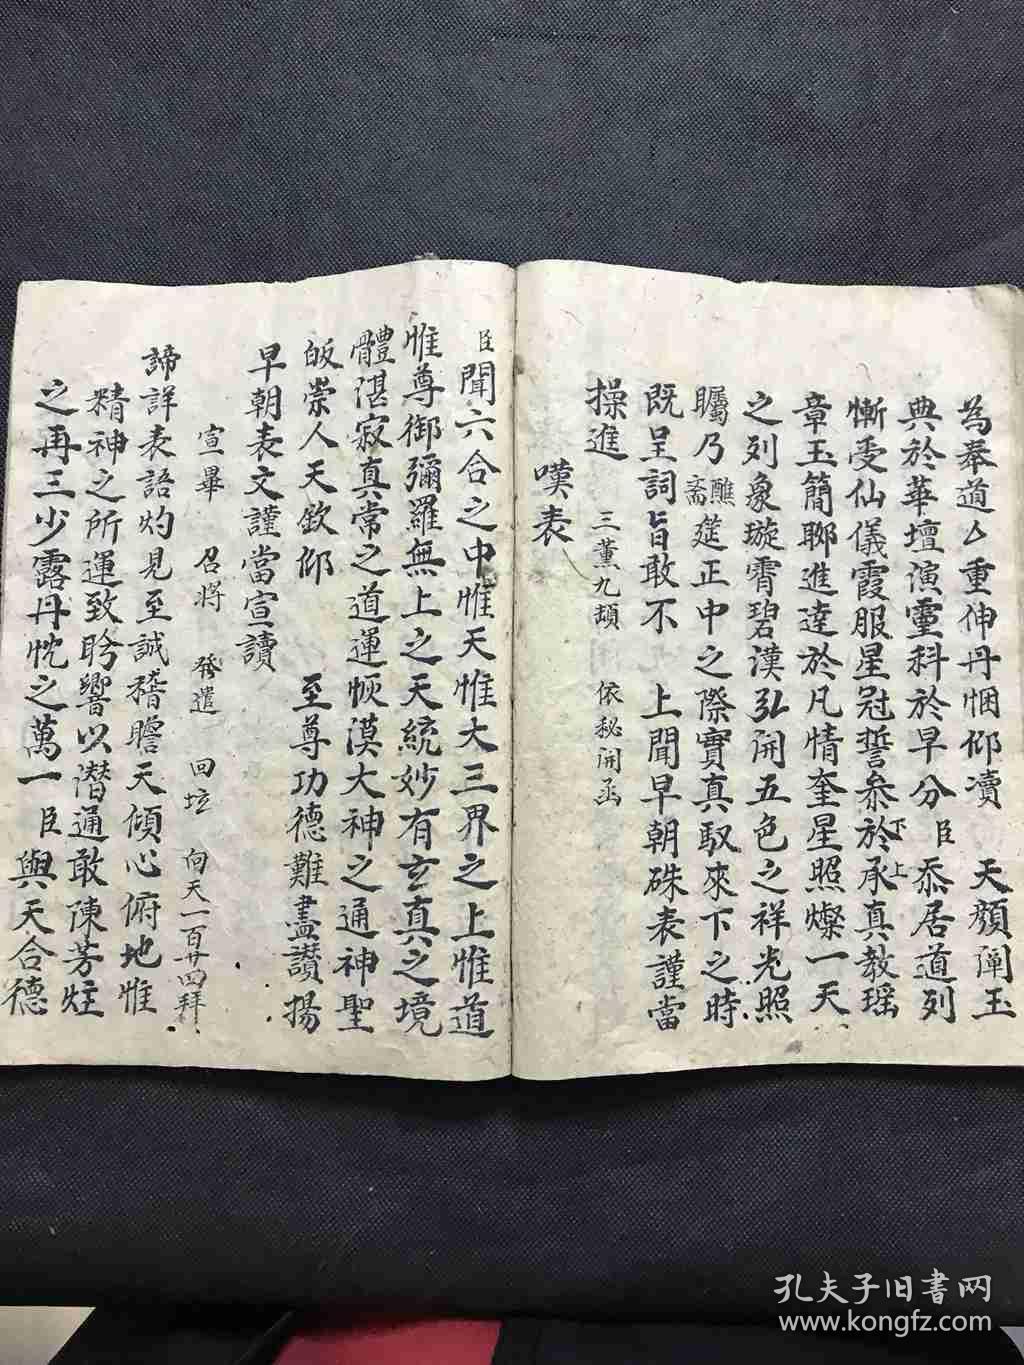 為奉道厶重伸丹悃仰瀆　天顏闡玉
典於華壇演靈科於早分臣忝居道列
慚受仙儀霞服星冠誓參於下上承真教瑶
章玉簡聊進達於凡情奎星照燦一天
之列象璇霄碧漢弘開五色之祥光照
矚乃醮斋筵正中之際實真馭來下之時
既呈詞旨敢不　上聞早朝硃表謹當
操進　三薰九頓　依秘開函
嘆表
臣聞六合之中惟天惟大三界之上惟道
惟尊御彌羅無上之天統妙有玄真之境
體湛寂真常之道運恢漠大神之通神聖
皈崇人天欽仰　至尊功德難盡讚揚
早朝表文謹當宣讀
宣畢　召將　發遣　回坛　向天一百廿四拜
諦詳表語灼見至誠稽瞻天傾心俯地惟
精神之所運致肹響以潜通敢陳芳炷
之再三少露丹忱之萬一臣與天合德
孔夫子旧书网
www.kongfz.com